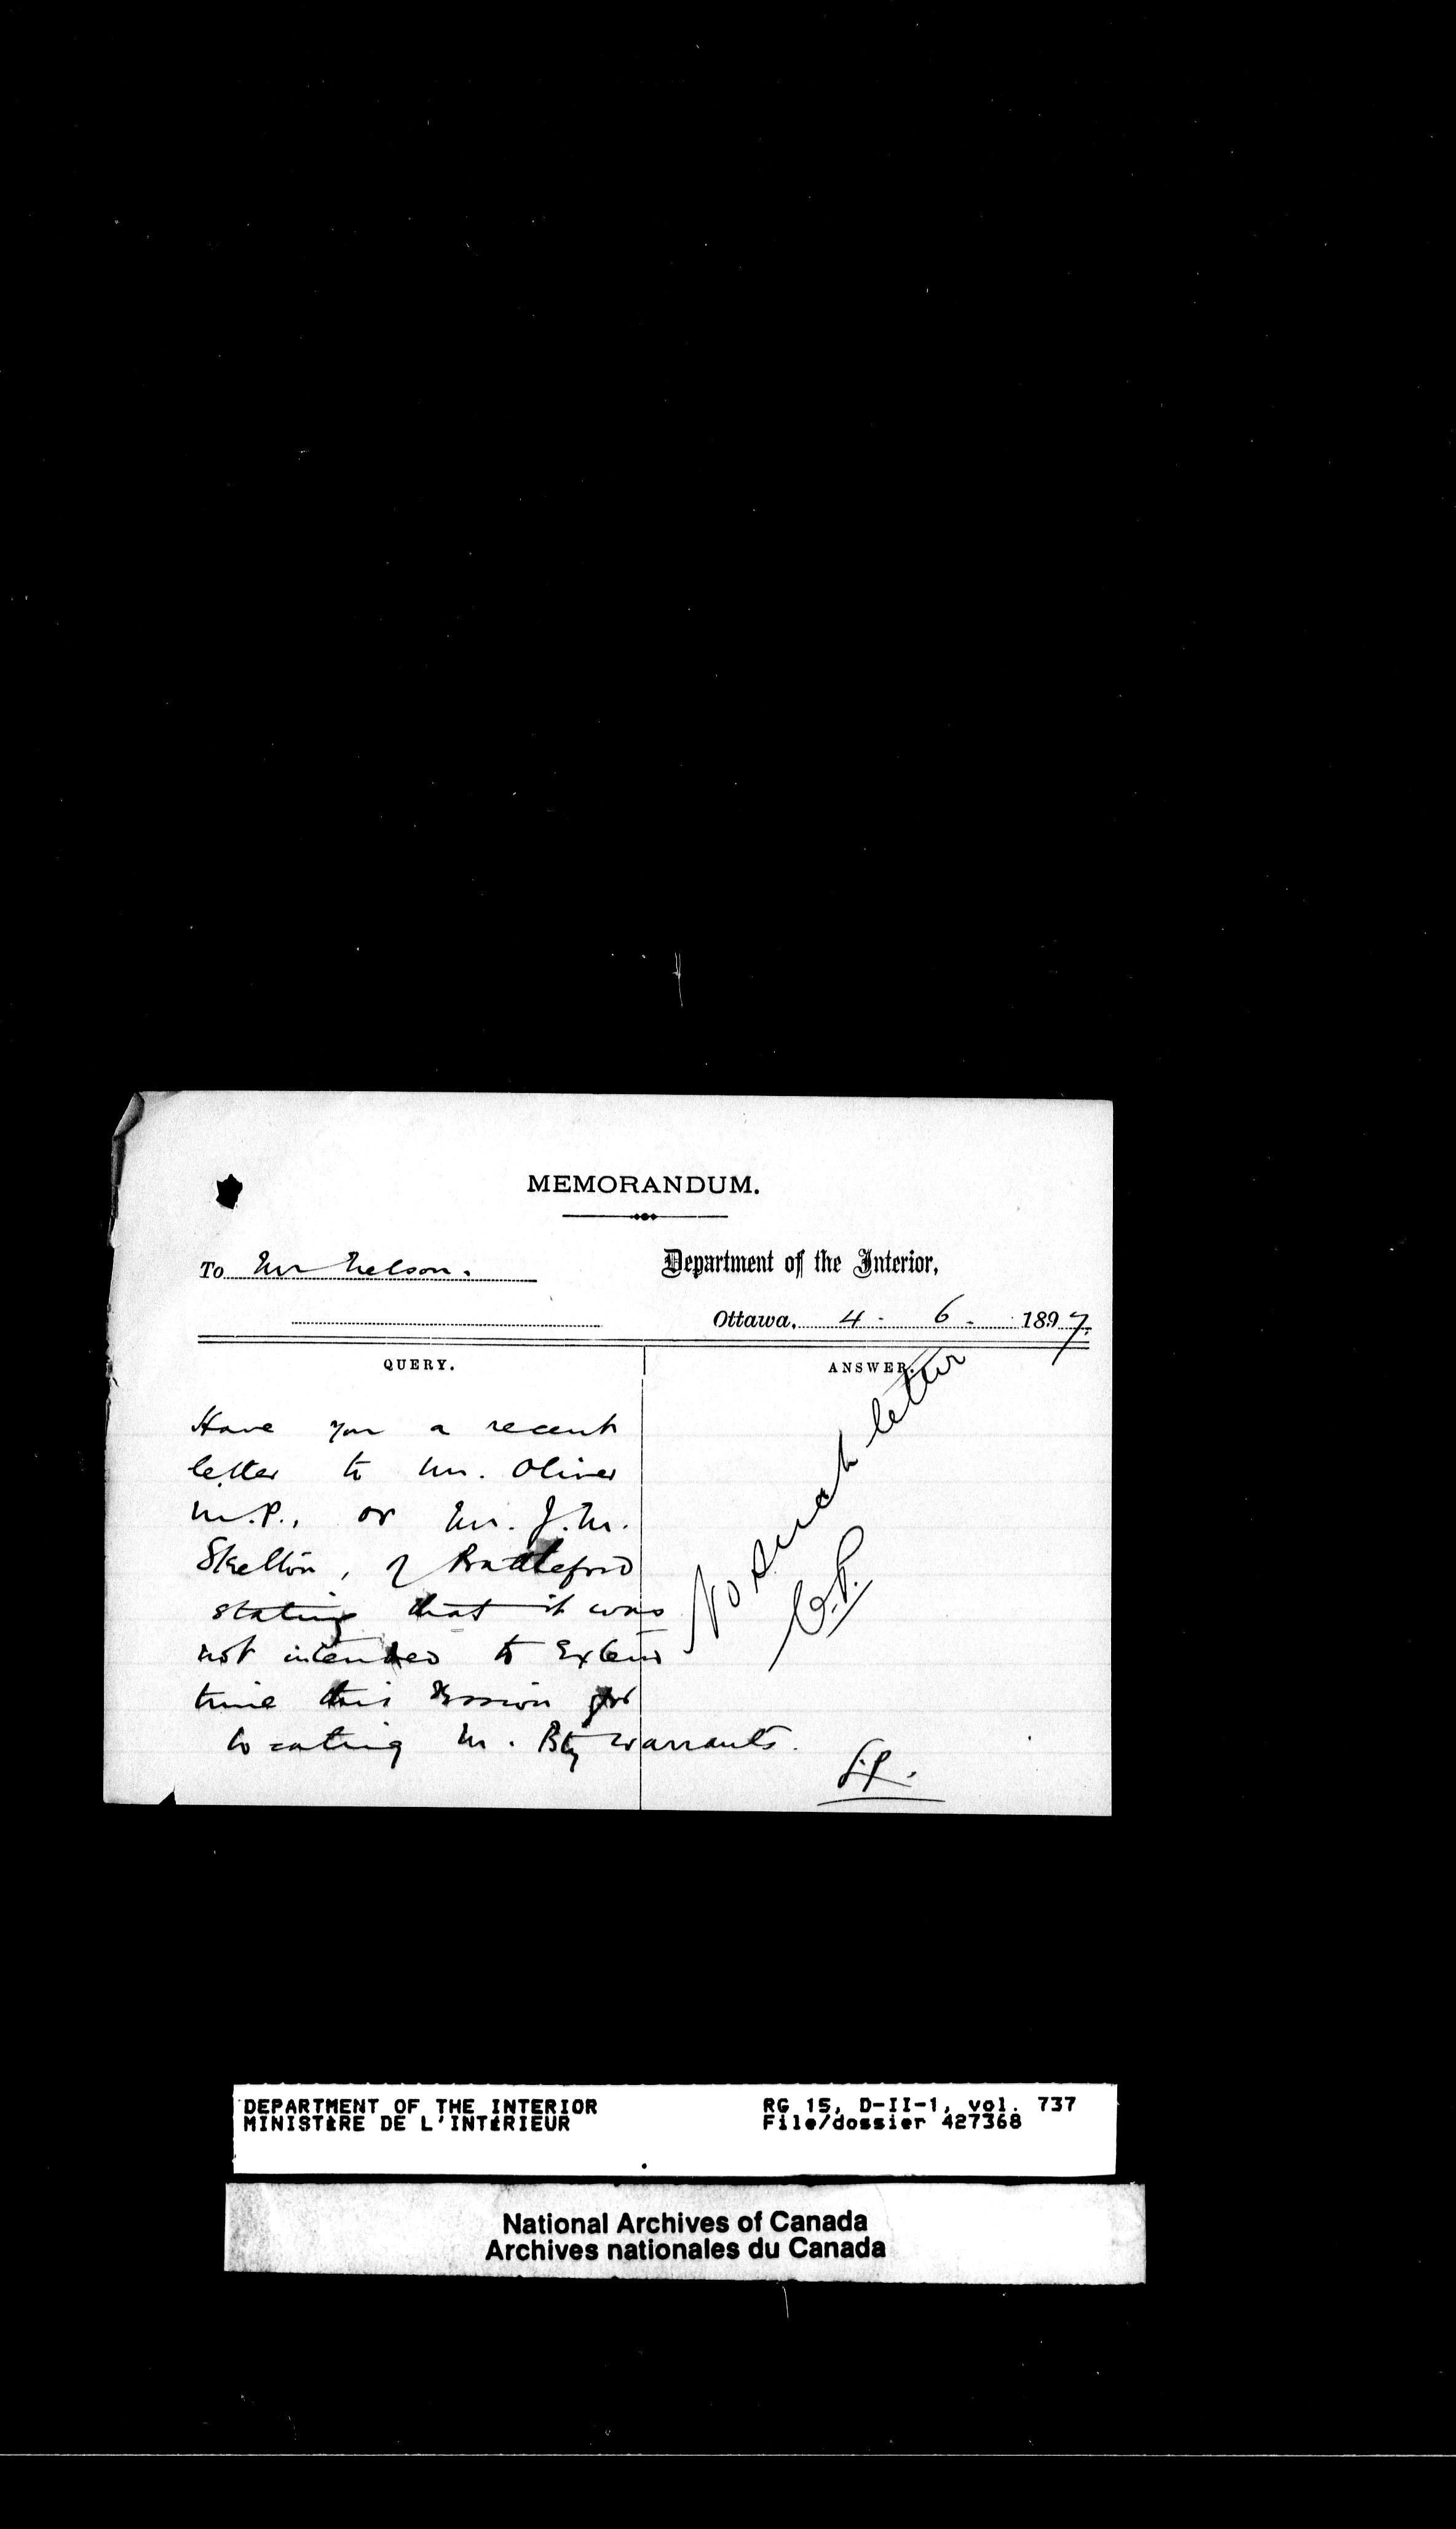 MEMORANDUM.
To Mr Nelson.
Department of the Interior,
Ottawa, 4 - 6 - 1897.
QUERY.
Have you a recent
letter to Mr. Oliver
M.P., or Mr. J.M.
Skelton, of Battleford
stating that it was
not intended to extend
time this Session for
locating M. Bty warrants.
ANSWER.
No such letter
DEPARTMENT OF THE INTERIOR
MINISTÈRE DE L'INTÉRIEUR
RG 15, D-II-1, vol. 737
File/dossier 427368
National Archives of Canada
Archives nationales du Canada